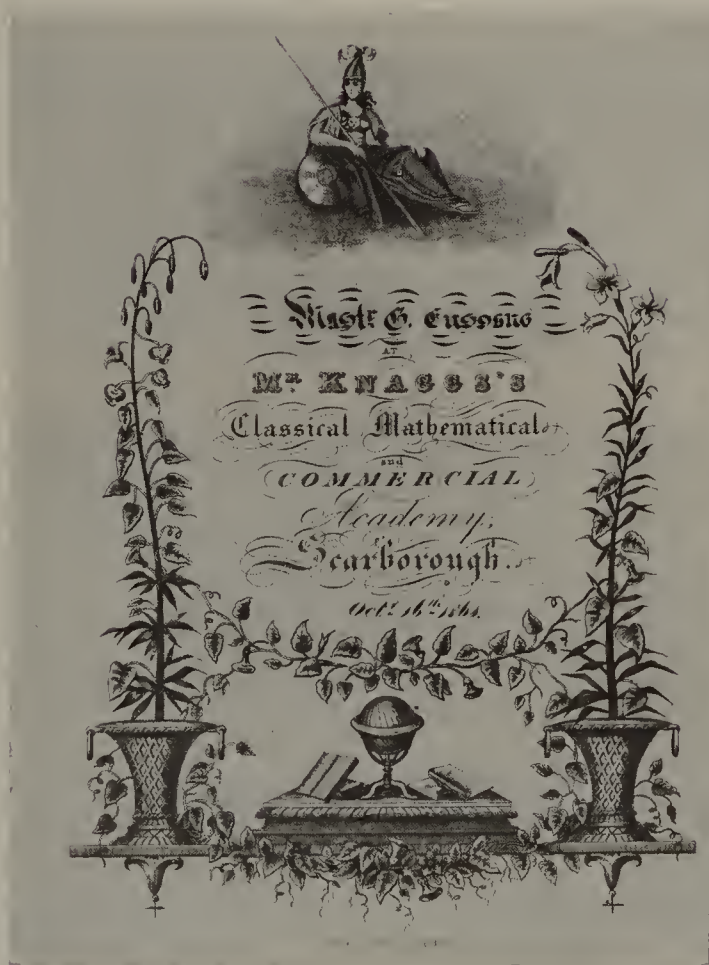 Mastr G.
AT
Mr. KNAGGS'S
Classical Mathematical
and
COMMERCIAL
Academy,
Scarborough.
Octr. 16th 1861.